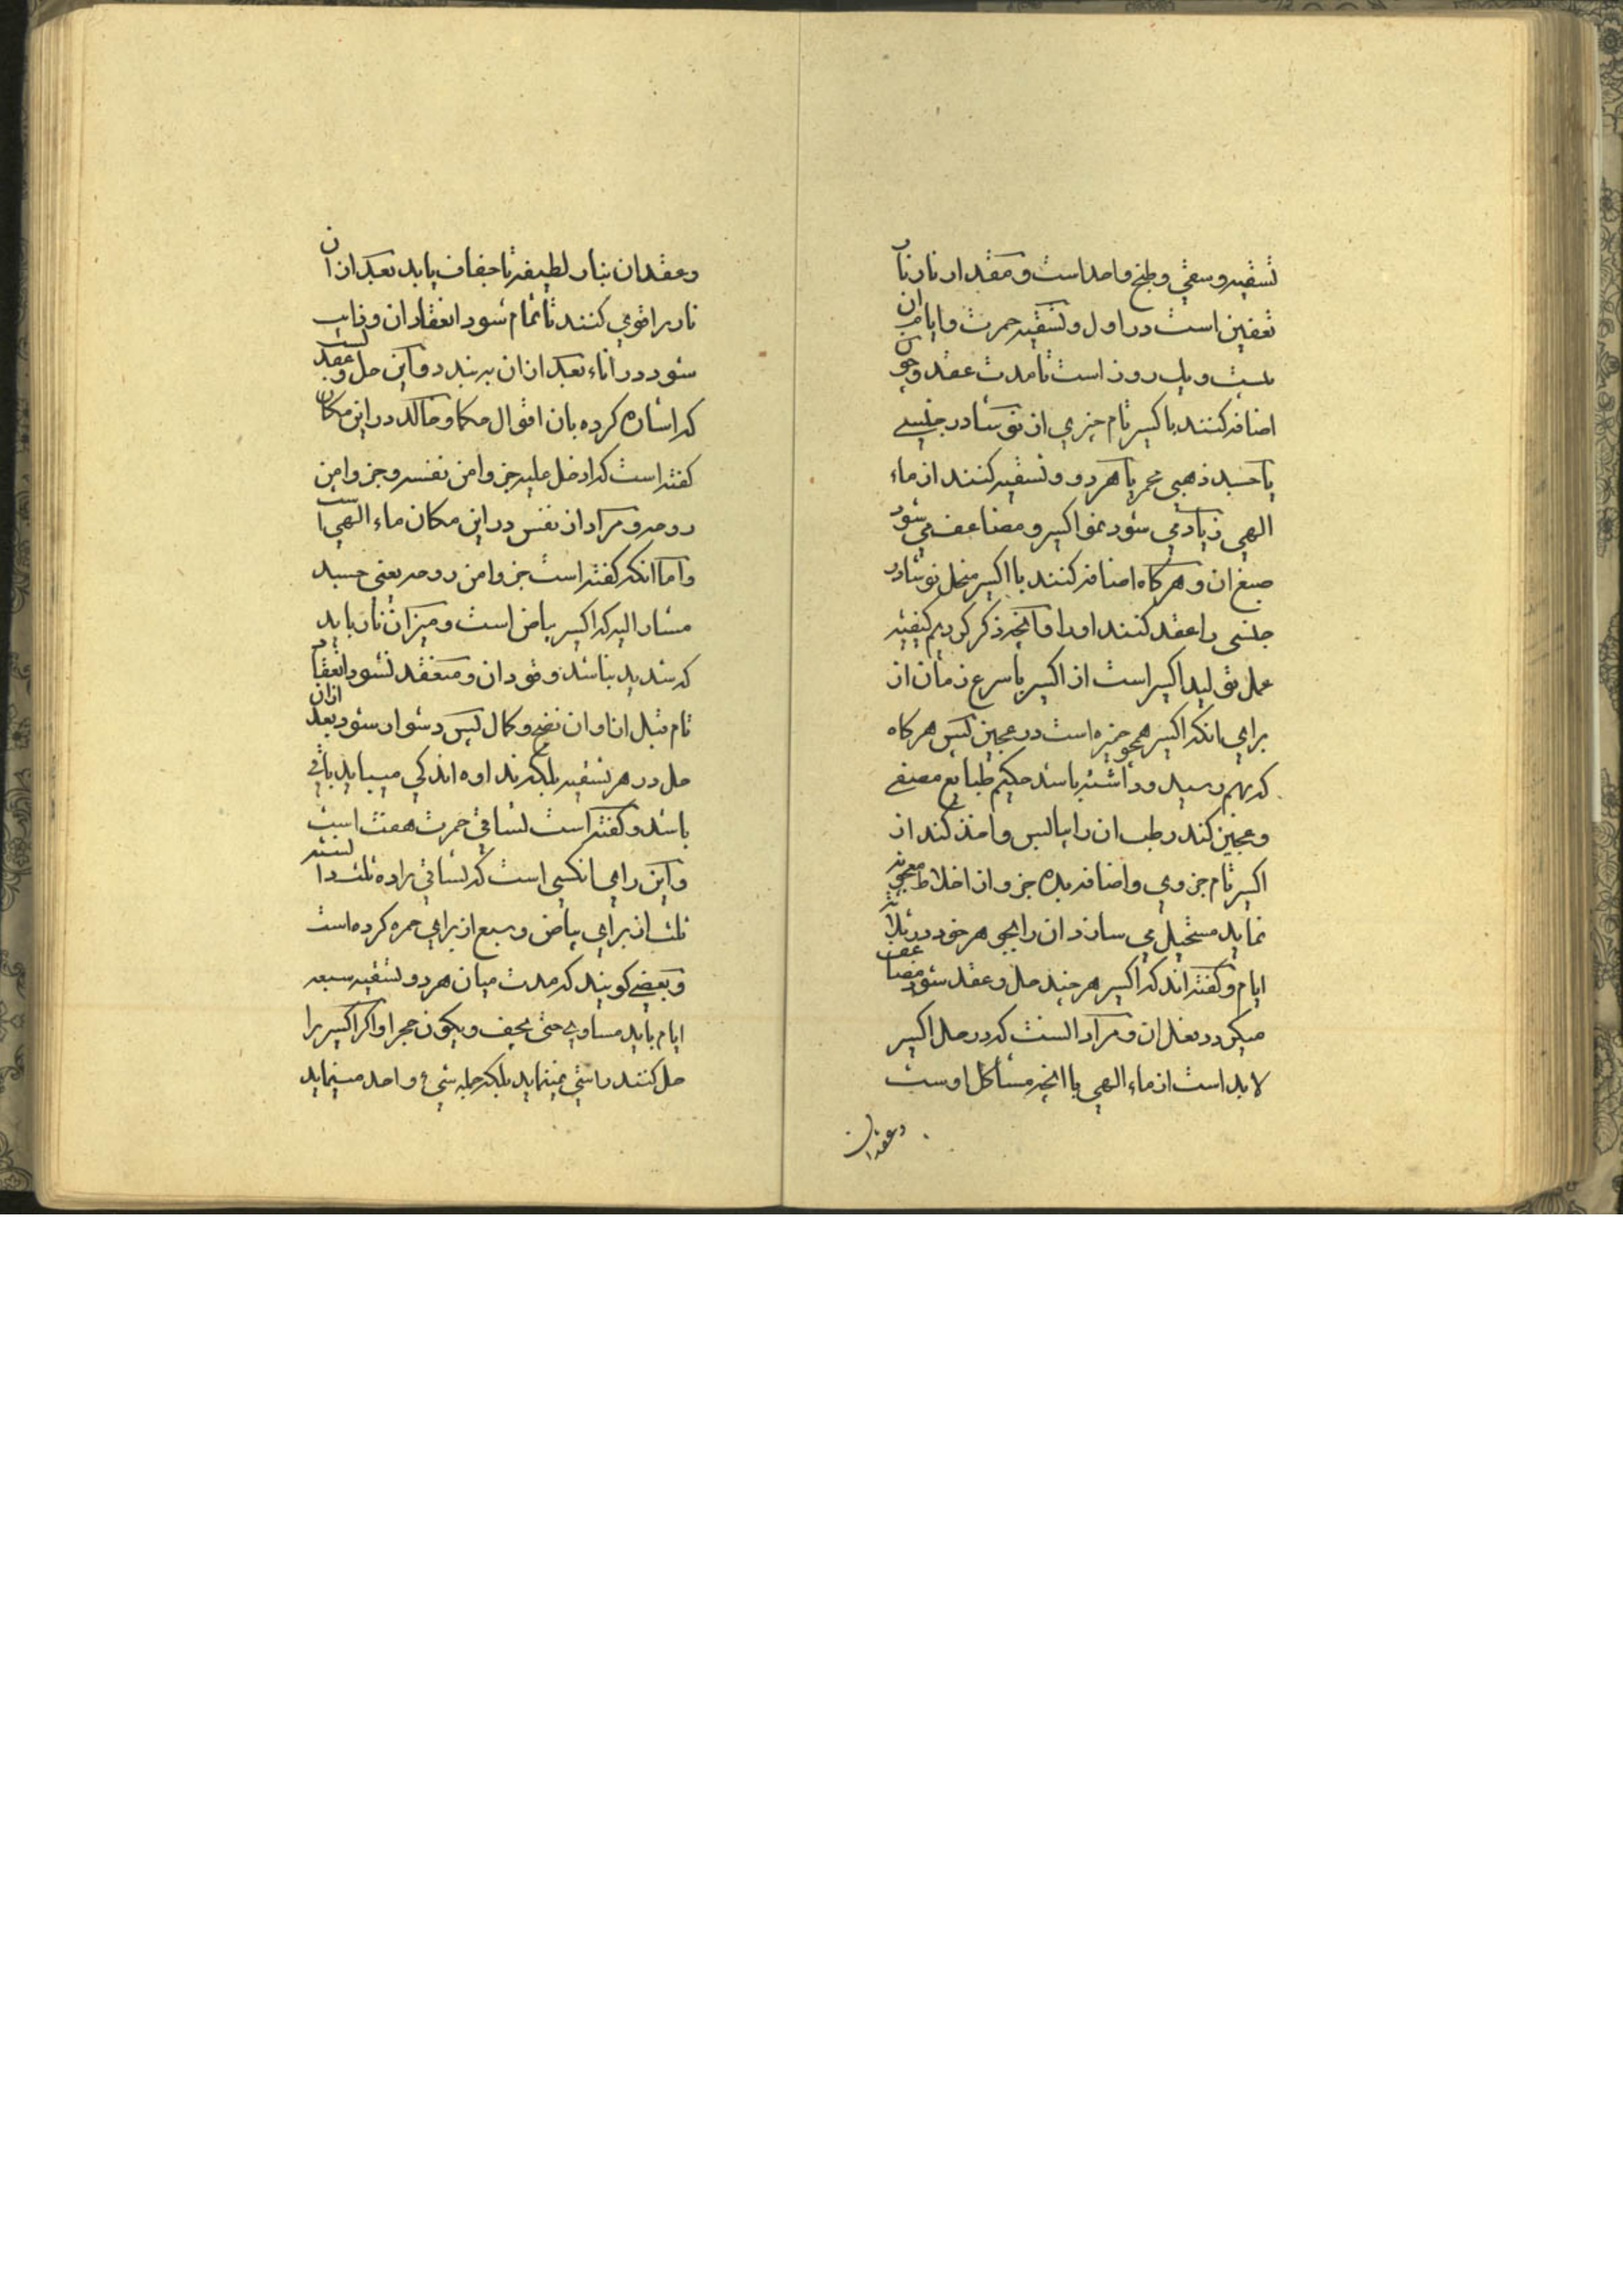 تسقیه و سقی و طبخ واحد است و مقدار نار نار
تعفین است در اول و تسقیه حمرت و ایام ان
بیست و یک روز است تا مدت عقد و چون
اضافه کنند باکسیر تام چیزی از نوشادر جنسی
یا جسد ذهبی محمر یا هر دو و تسقیه کنند از ماء
الهی زیاد می شود نمو اکسیر و مضاعف می شود
صبغ ان و هرکاه اضافه کنند با اکسیر منحل نوشادر
جنسی را عقد کنند او را و انچه ذکر کردیم کیفیه
عمل تولید اکسیر است از اکسیر باسرع زمان از
برای انکه اکسیر همچو خمیره است در عجین پس هرکاه
که بهم رسید و داشته باشد حکیم طبایع مصفی
و عجین کند رطب ان را بیابس و اخذ کند از
اکسیر تام جزوی و اضافه بده جزو از اخلاط معجونه
نماید مستحیل می سازد ان را بجوهر خود در ثلاثه
ایام و کفته اند که اکسیر هر چند حل و عقد شود مضاعف
میکردد فعل ان و مراد انست که در حل اکسیر
لابد است از ماء الهی یا انچه مشاکل اوست
و عقد ان
و عقد ان بنار لطیفه تا جفاف یابد بعد از ان
نار را قوی کنند تا تمام شود انعقاد ان و ذایب
شود در اناء بعد از ان برند و این حل و عقد است
که اشاره کرده بان اقوال حکما و خالد در این مکان
کفته است که ادخل علیه جزوا من نفسه و جزوا من
روحه و مراد از نفس در این مکان ماء الهی است
و اما انکه کفته است جزوا من روحه یعنی جسد
مشار الیه که اکسیر بیاض است و میزان نار باید
که شدید نباشد وقود ان و منعقد نشود انعقاد
تام قبل از اوان نضج و کمال یبس دشوار شود بعد ازان
حل در هر تسقیه بلکه نداوه اندکی میباید باقی
باشد و کفته است تساقی حمرت هفت است
و این رای انکسی است که تساقی را ده تشبیه
ثلث از برای بیاض و سبع از برای حمره کرده است
و بعضی کویند که مدت میان هر دو تسقیه سبعه
ایام باید مساوی حتی یجف و یکون حجرا و اکر اکسیر را
حل کنند راسی نمینماید بلکه جمله شیء واحد مینماید